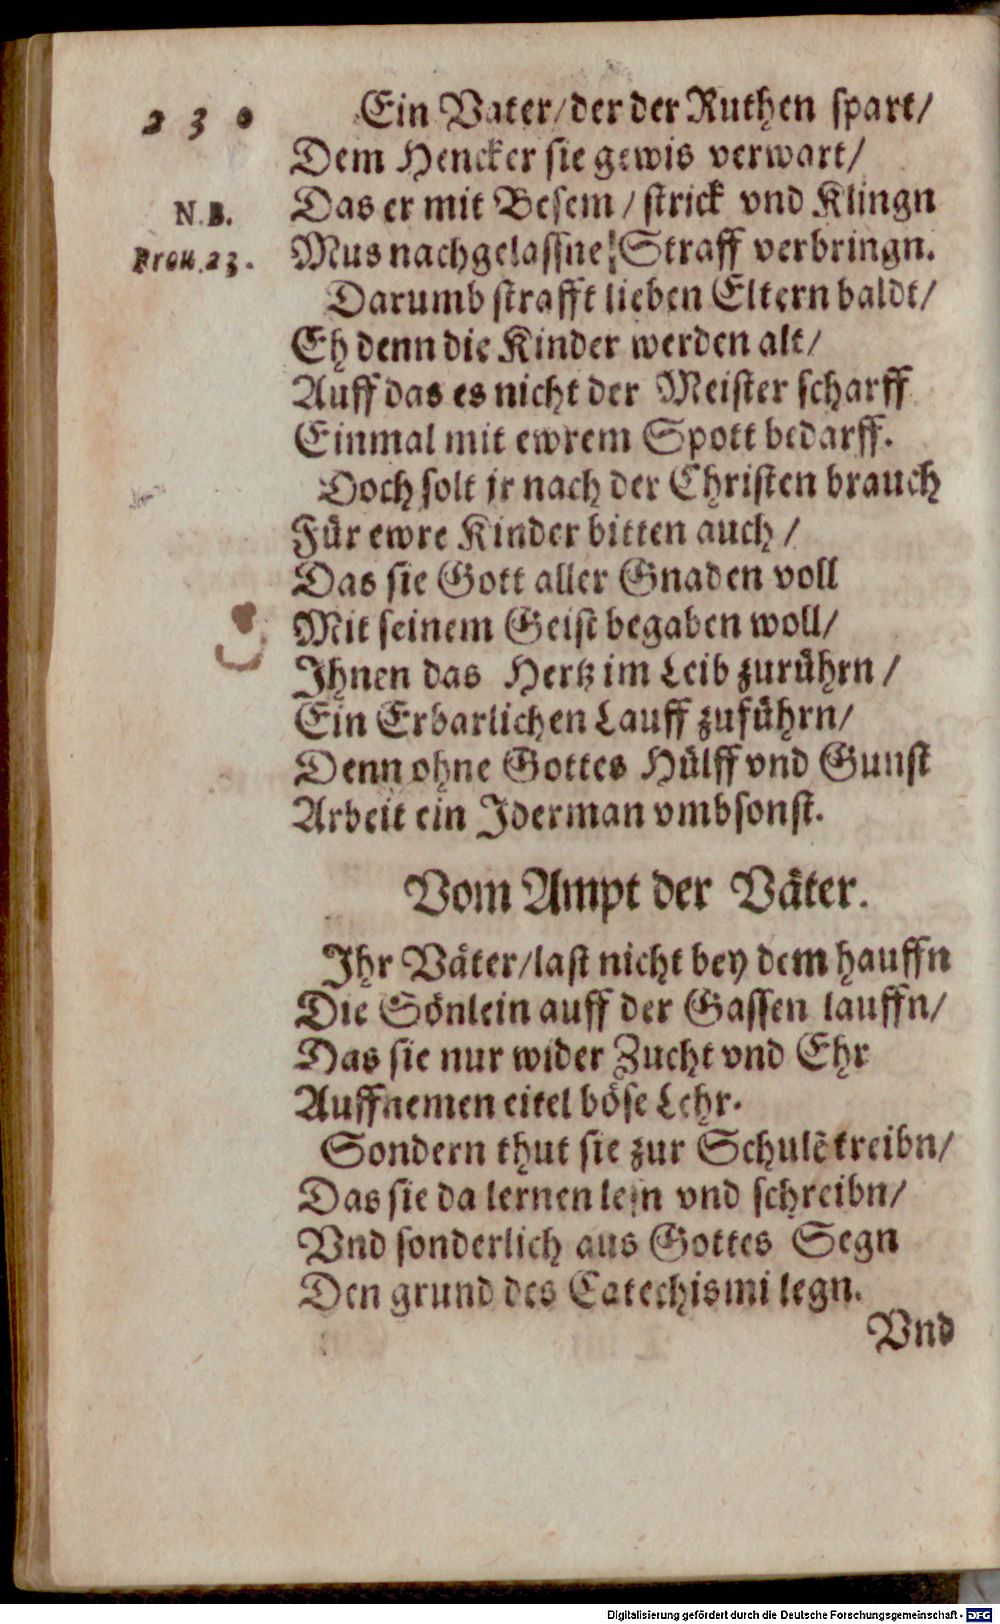 230
Ein Vater/ der der Ruthen spart/
Dem Hencker sie gewis verwart/
N.B.
Das er mit Besem / strick vnd Klingn
Prou.23.
Mus nachgelassne Straff verbringn.
Darumb strafft lieben Eltern baldt/
Eh denn die Kinder werden alt/
Auff das es nicht der Meister scharff
Einmal mit ewrem Spott bedarff.
Doch solt jr nach der Christen brauch
Für ewre Kinder bitten auch /
Das sie Gott aller Gnaden voll
Mit seinem Geist begaben woll/
Ihnen das Hertz im Leib zurührn /
Ein Erbarlichen Lauff zuführn/
Denn ohne Gottes Hülff vnd Gunst
Arbeit ein Jderman vmbsonst.
Vom Ampt der Väter.
Ihr Väter/ last nicht bey dem hauffn
Die Sönlein auff der Gassen lauffn/
Das sie nur wider Zucht vnd Ehr
Auffnemen eitel böse Lehr.
Sondern thut sie zur Schulẽ treibn/
Das sie da lernen lesn vnd schreibn/
Vnd sonderlich aus Gottes Segn
Den grund des Catechismi legn.
Vnd
Digitalisierung gefördert durch die Deutsche Forschungsgemeinschaft - DFG